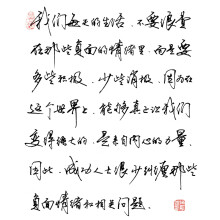 我们每天的生活，不要浪费
在那些负面的情绪里，而是要
多些积极，少些消极，因为在
这个世界上，能够真正让我们
变得强大的，是来自内心的力量
因此，成功人士很少纠缠那些
负面情绪和相关问题。